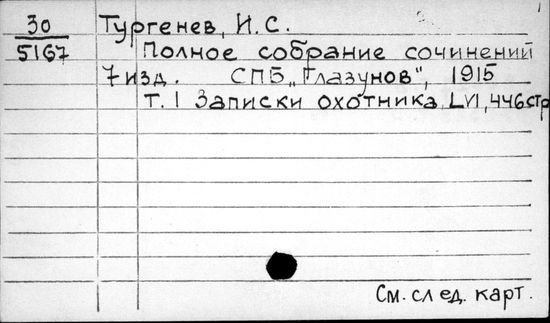 30 Тургенев, И.С.
5167 Полное собрание сочинений
7 изд. СПБ „Глазунов", 1915
т. 1 Записки охотника, LVI, 446 стр
См. след. карт.